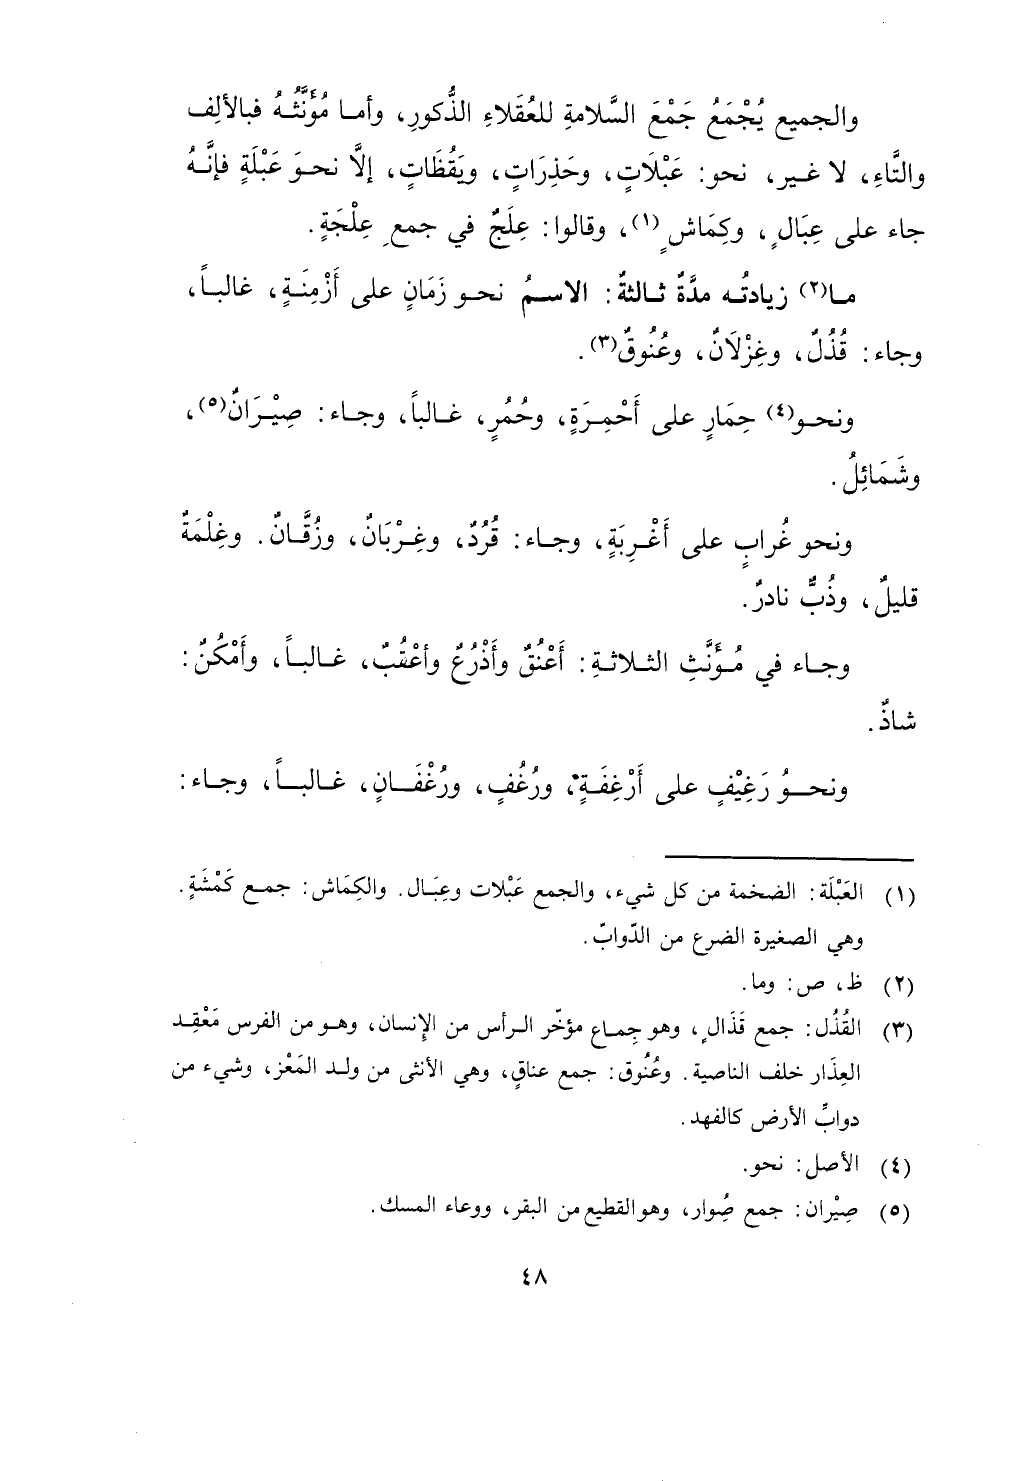 والجميع يُجْمَعُ جَمْعَ السَّلامةِ للعُقَلاءِ الذُّكورِ، وأما مُؤَنَّثُهُ فبالألِف
والتَّاءِ، لا غير، نحو: عَبْلَاتٍ، وحَذِرَاتٍ، ويَقُظَاتٍ، إلَّا نحوَ عَبْلَةٍ فإنَّهُ
جاء على عِبَالٍ، وكِمَاشٍ(١)، وقالوا: عِلَجٌ في جمعِ عِلْجَةٍ.
ما(٢) زيادتُه مدَّةٌ ثالثةٌ: الاسمُ نحو زَمَانٍ على أَزْمِنَةٍ، غالباً،
وجاء: قُذُلٌ، وغِزْلَانٌ، وعُنُوقٌ(٣).
ونحو(٤) حِمَارٍ على أَحْمِرَةٍ، وحُمُرٍ، غالباً، وجاء: صِيْرَانٌ(٥)،
وشَمَائِلُ.
ونحو غُرابٍ على أَغْرِبَةٍ، وجاء: قُرُدٌ، وغِرْبَانٌ، وزُقَّانٌ. وغِلْمَةٌ
قليلٌ، وذُبٌّ نادرٌ.
وجاء في مُؤَنَّثِ الثلاثةِ: أَعْنُقٌ وأَذْرُعٌ وأعْقُبٌ، غالباً، وأَمْكُنٌ:
شاذٌ.
ونحوُ رَغِيْفٍ على أَرْغِفَةٍ، ورُغُفٍ، ورُغْفَانٍ، غالباً، وجاء:
(١) العَبْلَة: الضخمة من كل شيء، والجمع عَبْلات وعِبَال. والكِمَاش: جمع كَمْشَةٍ.
وهي الصغيرة الضرع من الدّوابّ.
(٢) ظ، ص: وما.
(٣) القُذُل: جمع قَذَالٍ، وهو جِماع مؤخّر الرأس من الإنسان، وهو من الفرس مَعْقِد
العِذَار خلف الناصية. وعُنُوق: جمع عناقٍ، وهي الأنثى من ولد المَعْز، وشيء من
دوابِّ الأرض كالفهد.
(٤) الأصل: نحو.
(٥) صِيْران: جمع صُِوار، وهو القطيع من البقر، ووعاء المسك.
٤٨